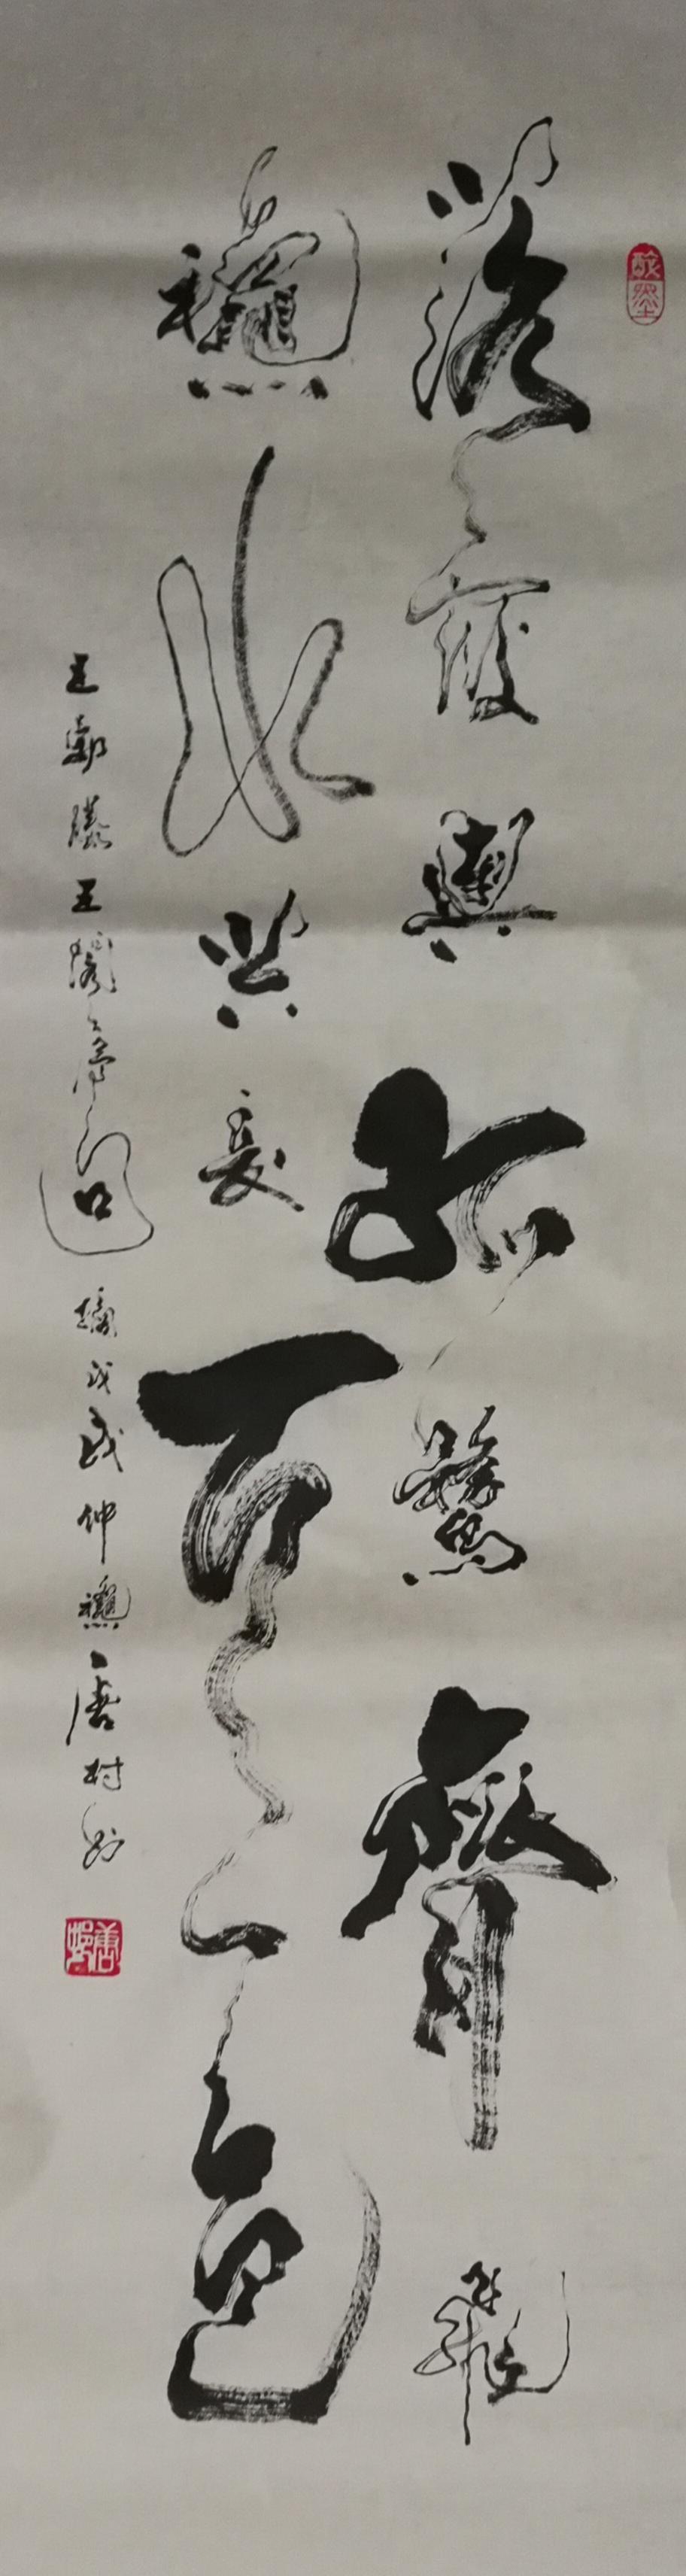 落霞與孤鶩齊飛
龝水共長天一色
王勃滕王閣序句 摘戊戌仲龝唐村